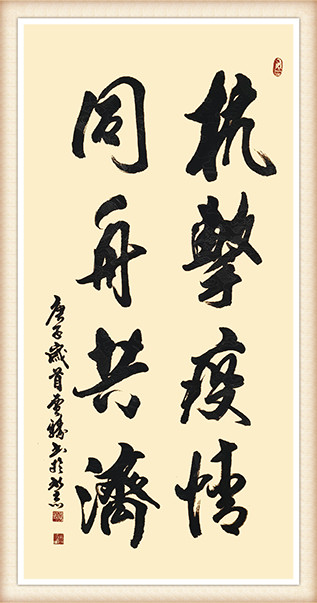 抗擊疫情
同舟共濟
庚子歲首